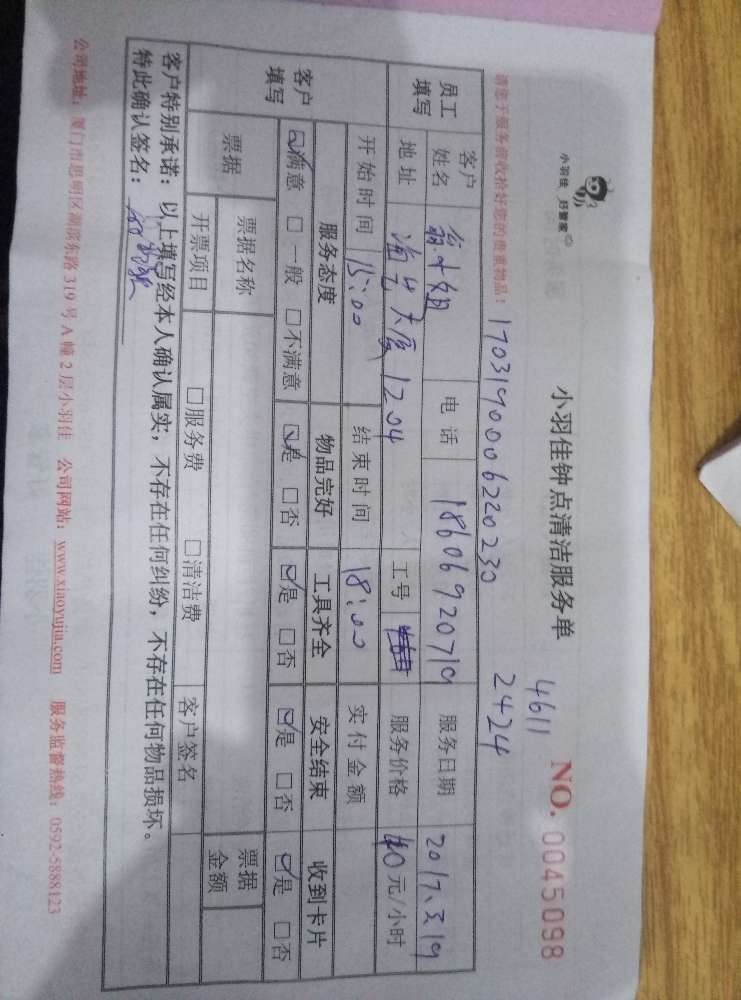 小羽佳 好管家
小羽佳钟点清洁服务单
NO. 0045098
4611
2424
请您于服务前收拾好您的贵重物品！
1703190006220230
员工填写
客户姓名 翁小姐 电话 18606920719 服务日期 2017.3.19
地址 大厦1204 工号 服务价格 40元/小时
开始时间 15:00 结束时间 18:00 实付金额
客户填写
服务态度 物品完好 工具齐全 安全结束 收到卡片
☑满意 □一般 □不满意 ☑是 □否 ☑是 □否 ☑是 □否 ☑是 □否
票据 票据名称 票据金额
开票项目 □服务费 □清洁费 客户签名
客户特别承诺：以上填写经本人确认属实，不存在任何纠纷，不存在任何物品损坏。
特此确认签名：
公司地址：厦门市思明区湖滨东路319号A幢2层小羽佳 公司网站：www.xiaoyujia.com 服务监督热线：0592-5888123